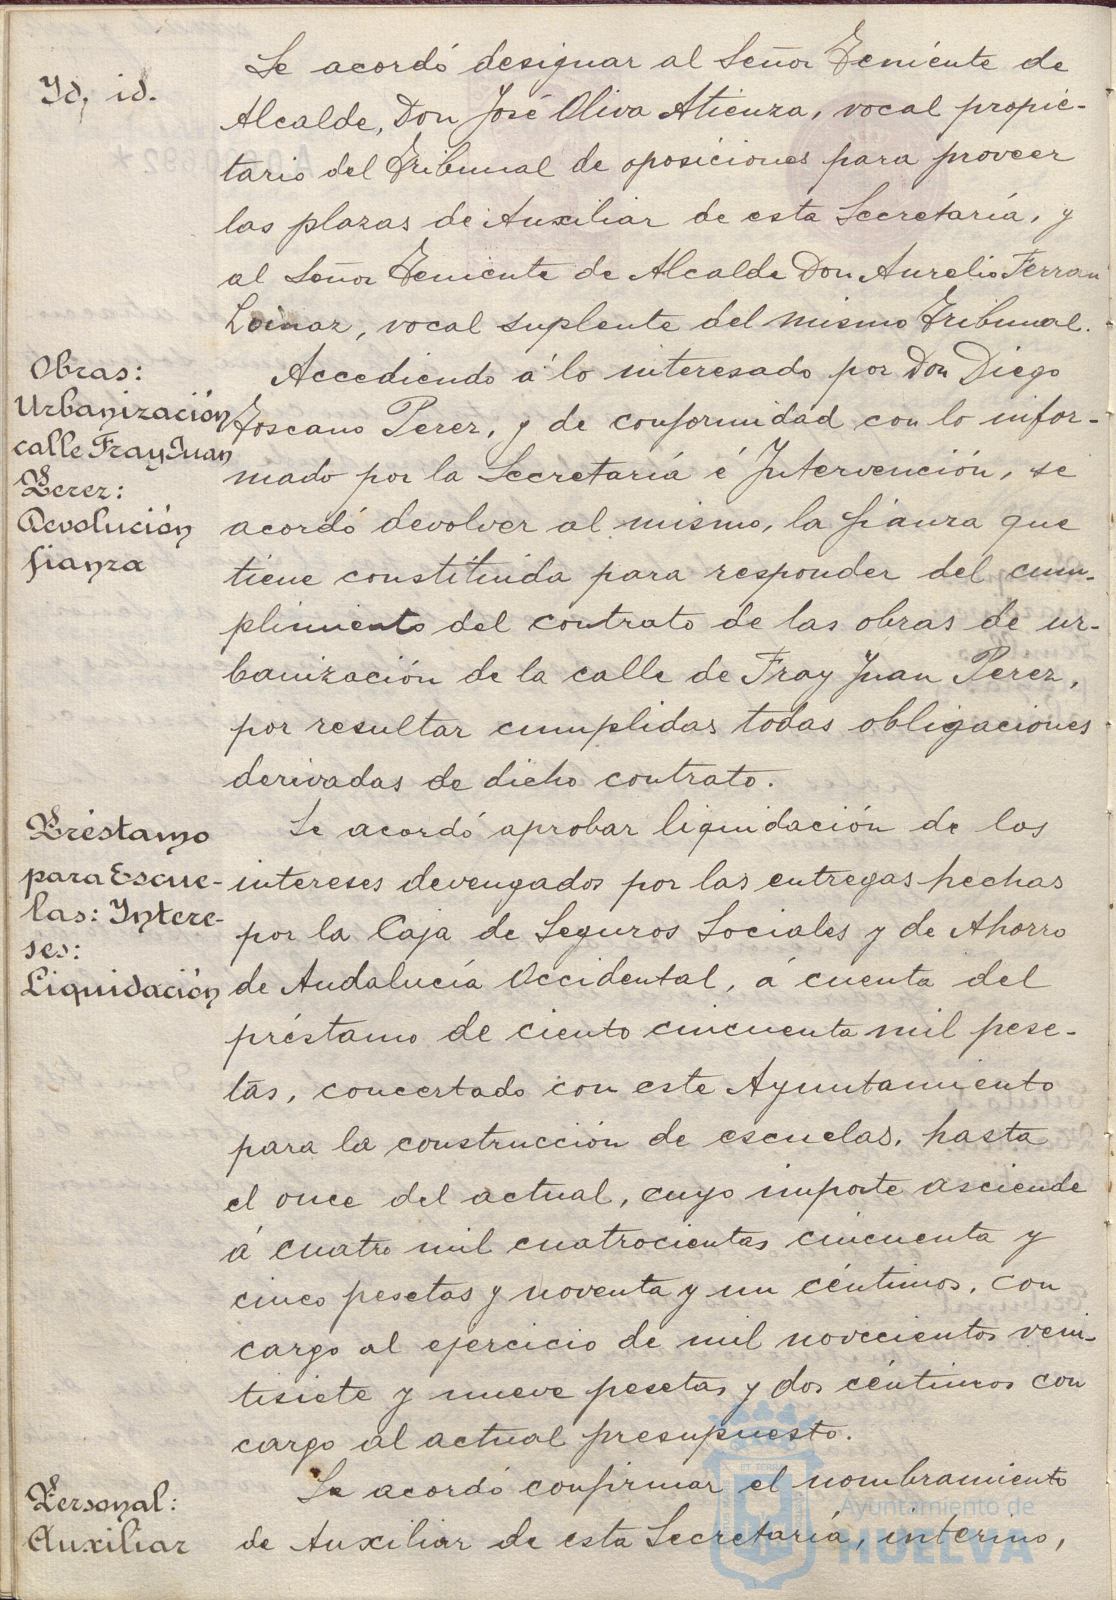 Yd, id.
Se acordó designar al Señor Teniente de
Alcalde, Don José Oliva Atienza, vocal propie-
tario del Tribunal de oposiciones para proveer
las plazas de Auxiliar de esta Secretaría, y
al Señor Teniente de Alcalde Don Aurelio Ferran
vocal suplente del mismo Tribunal.
Obras:
Urbanización
calle Fray Juan
Perez:
Devolución
fianza
Accediendo á lo interesado por Don Diego
Toscano Perez, y de conformidad con lo infor-
mado por la Secretaría é Intervención, se
acordó devolver al mismo, la fianza que
tiene constituida para responder del cum-
plimiento del contrato de las obras de ur-
banización de la calle de Fray Juan Perez,
por resultar cumplidas todas obligaciones
derivadas de dicho contrato.
Préstamo
para Escue-
las: Intere-
ses:
Liquidación
Se acordó aprobar liquidación de los
intereses devengados por las entregas hechas
por la Caja de Seguros Sociales y de Ahorro
de Andalucía Occidental, á cuenta del
préstamo de ciento cincuenta mil pese-
tas, concertado con este Ayuntamiento
para la construcción de escuelas, hasta
el once del actual, cuyo importe asciende
á cuatro mil cuatrocientas cincuenta y
cinco pesetas y noventa y un céntimos, con
cargo al ejercicio de mil novecientos vein-
tisiete y nueve pesetas y dos céntimos con
cargo al actual presupuesto.
Personal:
Auxiliar
Se acordó confirmar el nombramiento
de Auxiliar de esta Secretaría, interino,
Ayuntamiento de
HUELVA